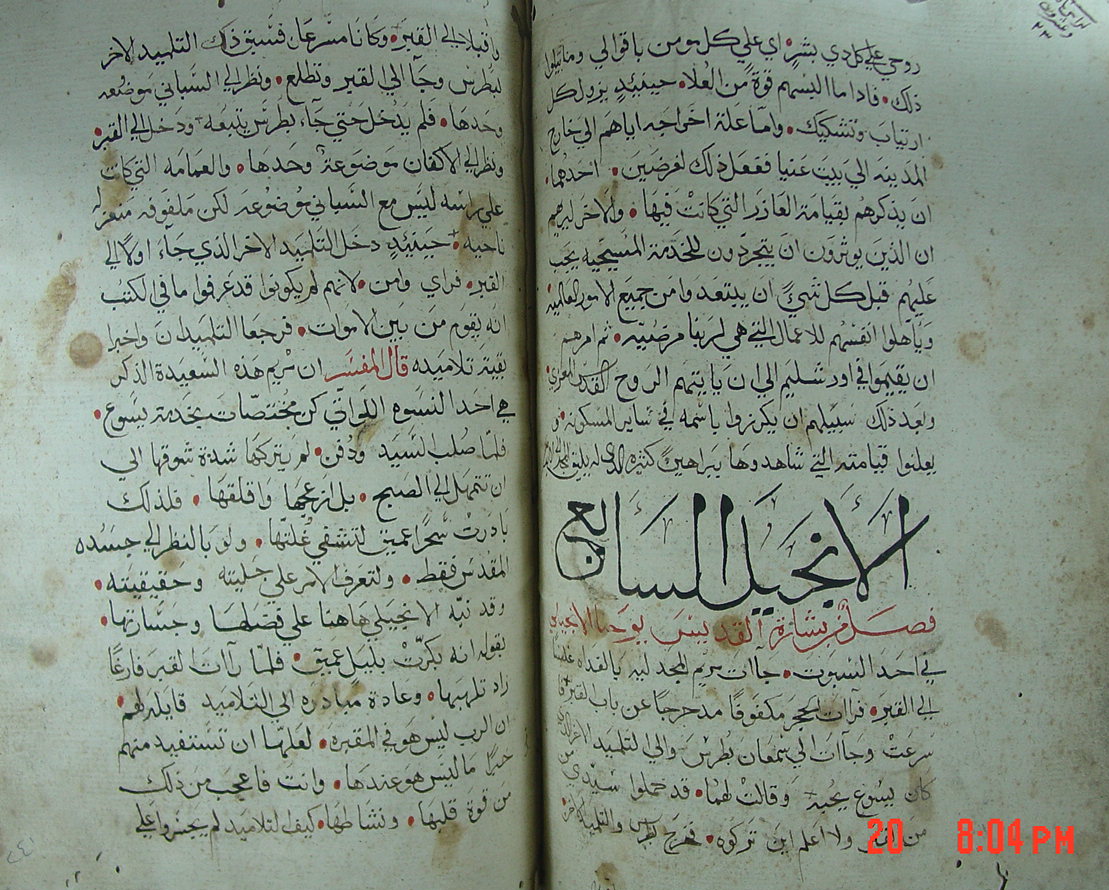 روحي علي كل دي بشر اي علي كل مومن باقوالي وما يتلوا
ذلك فاداما البستهم قوة من العلا حينيدٍ يزول كل
ارتياب وتشكيك واما علة اخراجه اياهم الي خارج
المدينه الي بيت عنيا ففعل ذلك لغرضين احدهما
ان يذكرهم بقيامة العازر التي كانت فيها والاخر ليريهم
ان الذين يوثرون ان يتجردون للخدمة المسيحيه يجب
عليهم قبل كل شيً ان يبتعدوا من جميع الامور العالميه
ويآهلوا انفسهم للاعمال التي هي لربنا مرضيه ثم امرهم
ان يقيموا في اورشليم الي ان ياتيهم الروح القدس المعزي
وبعد ذلك سبيلهم ان يكرزوا باسمه في ساير المسكونه و
يعلنوا قيامته التي شاهدوها ببراهين كثيره الدي له يليق
الانجيل السابع
فصل من بشارة القديس يوحنا الانجيلي
في احد السبوت جآات مريم المجدليه بالغداه غلسًا
الي القبر فرآات الحجر مكفوفًا مدحرجًا عن باب القبر
سرعت وجآات الي سمعان بطرس والي التلميد الاخر الدي
كان يسوع يحبه وقالت لهما قد حملوا سيدي من
ولا اعلم اين تركوه فخرج بطرس والتلميد الاخر
واقبلا الي القبر وكانا مسرعان فسبق ذلك التلميد الاخر
لبطرس وجآ الي القبر وتطلع ونظر الي السباني موضوعه
وحدها فلم يدخل حتي جآء بطرس يتبعه ودخل الي القبر
ونظر الي الاكفان موضوعة وحدها والعمامه التي كات
علي راسه ليس مع السباني موضوعه لكن ملفوفه منعزله
ناحيه حينيدٍ دخل التلميد الاخر الدي جآء اولا الي
القبر فراي وامن لانهم لم يكونوا قد عرفوا ما في الكتب
انه يقوم من بين الاموات فرجعا التلميدان واخبرا
بقية تلاميده قال المفسر ان مريم هذه السعيدة الذكر
هي احد النسوه اللواتي كن مختصات بخدمة يسوع
فلما صلب السيد ودفن لم يتركها شدة شوقها الي
ان تتمهل الي الصبح بل ازعجها واقلقها فلذلك
بادرت سحرًا عميق لتشفي غلتها ولو بالنظر الي جسده
المقدس فقط ولتعرف الامر علي جليته وحقيقيته
وقد نبه الانجيلي هاهنا علي فضلها وجسارتها
بقوله انه بكرت بليل عميق فلما رآات القبر فارغًا
زاد تلهبها وعادة مبادره الي التلاميد قايله لهم
ان الرب ليس هو في المقبره لعلها ان تستفيد منهم
خبرًا ما ليس هو عندها وانت فاعجب من ذلك
من قوة قلبها ونشاطها كيف التلاميد لم يجسروا علي
20 8:04 PM